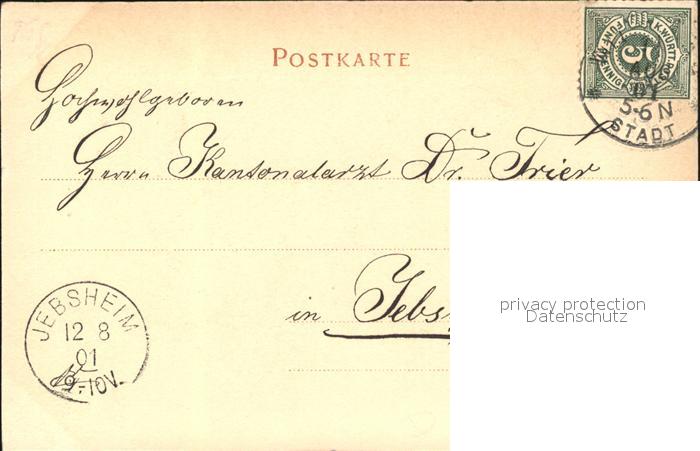 POSTKARTE
K. WÜRTT. POST
FÜNF PFENNIG
5
AU
01
5-6 N
STADT
Hochwohlgeboren
Herrn Kantonalarzt Dr. Trier
in Jebs
JEBSHEIM
12 8
01
9-10V.
privacy protection
Datenschutz